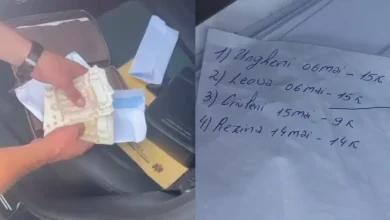 1) Ungheni 06 mai - 15k
2) Leova 06 mai - 15k
3) Criuleni 15 mai - 9k
4) Rezina 14 mai - 14k